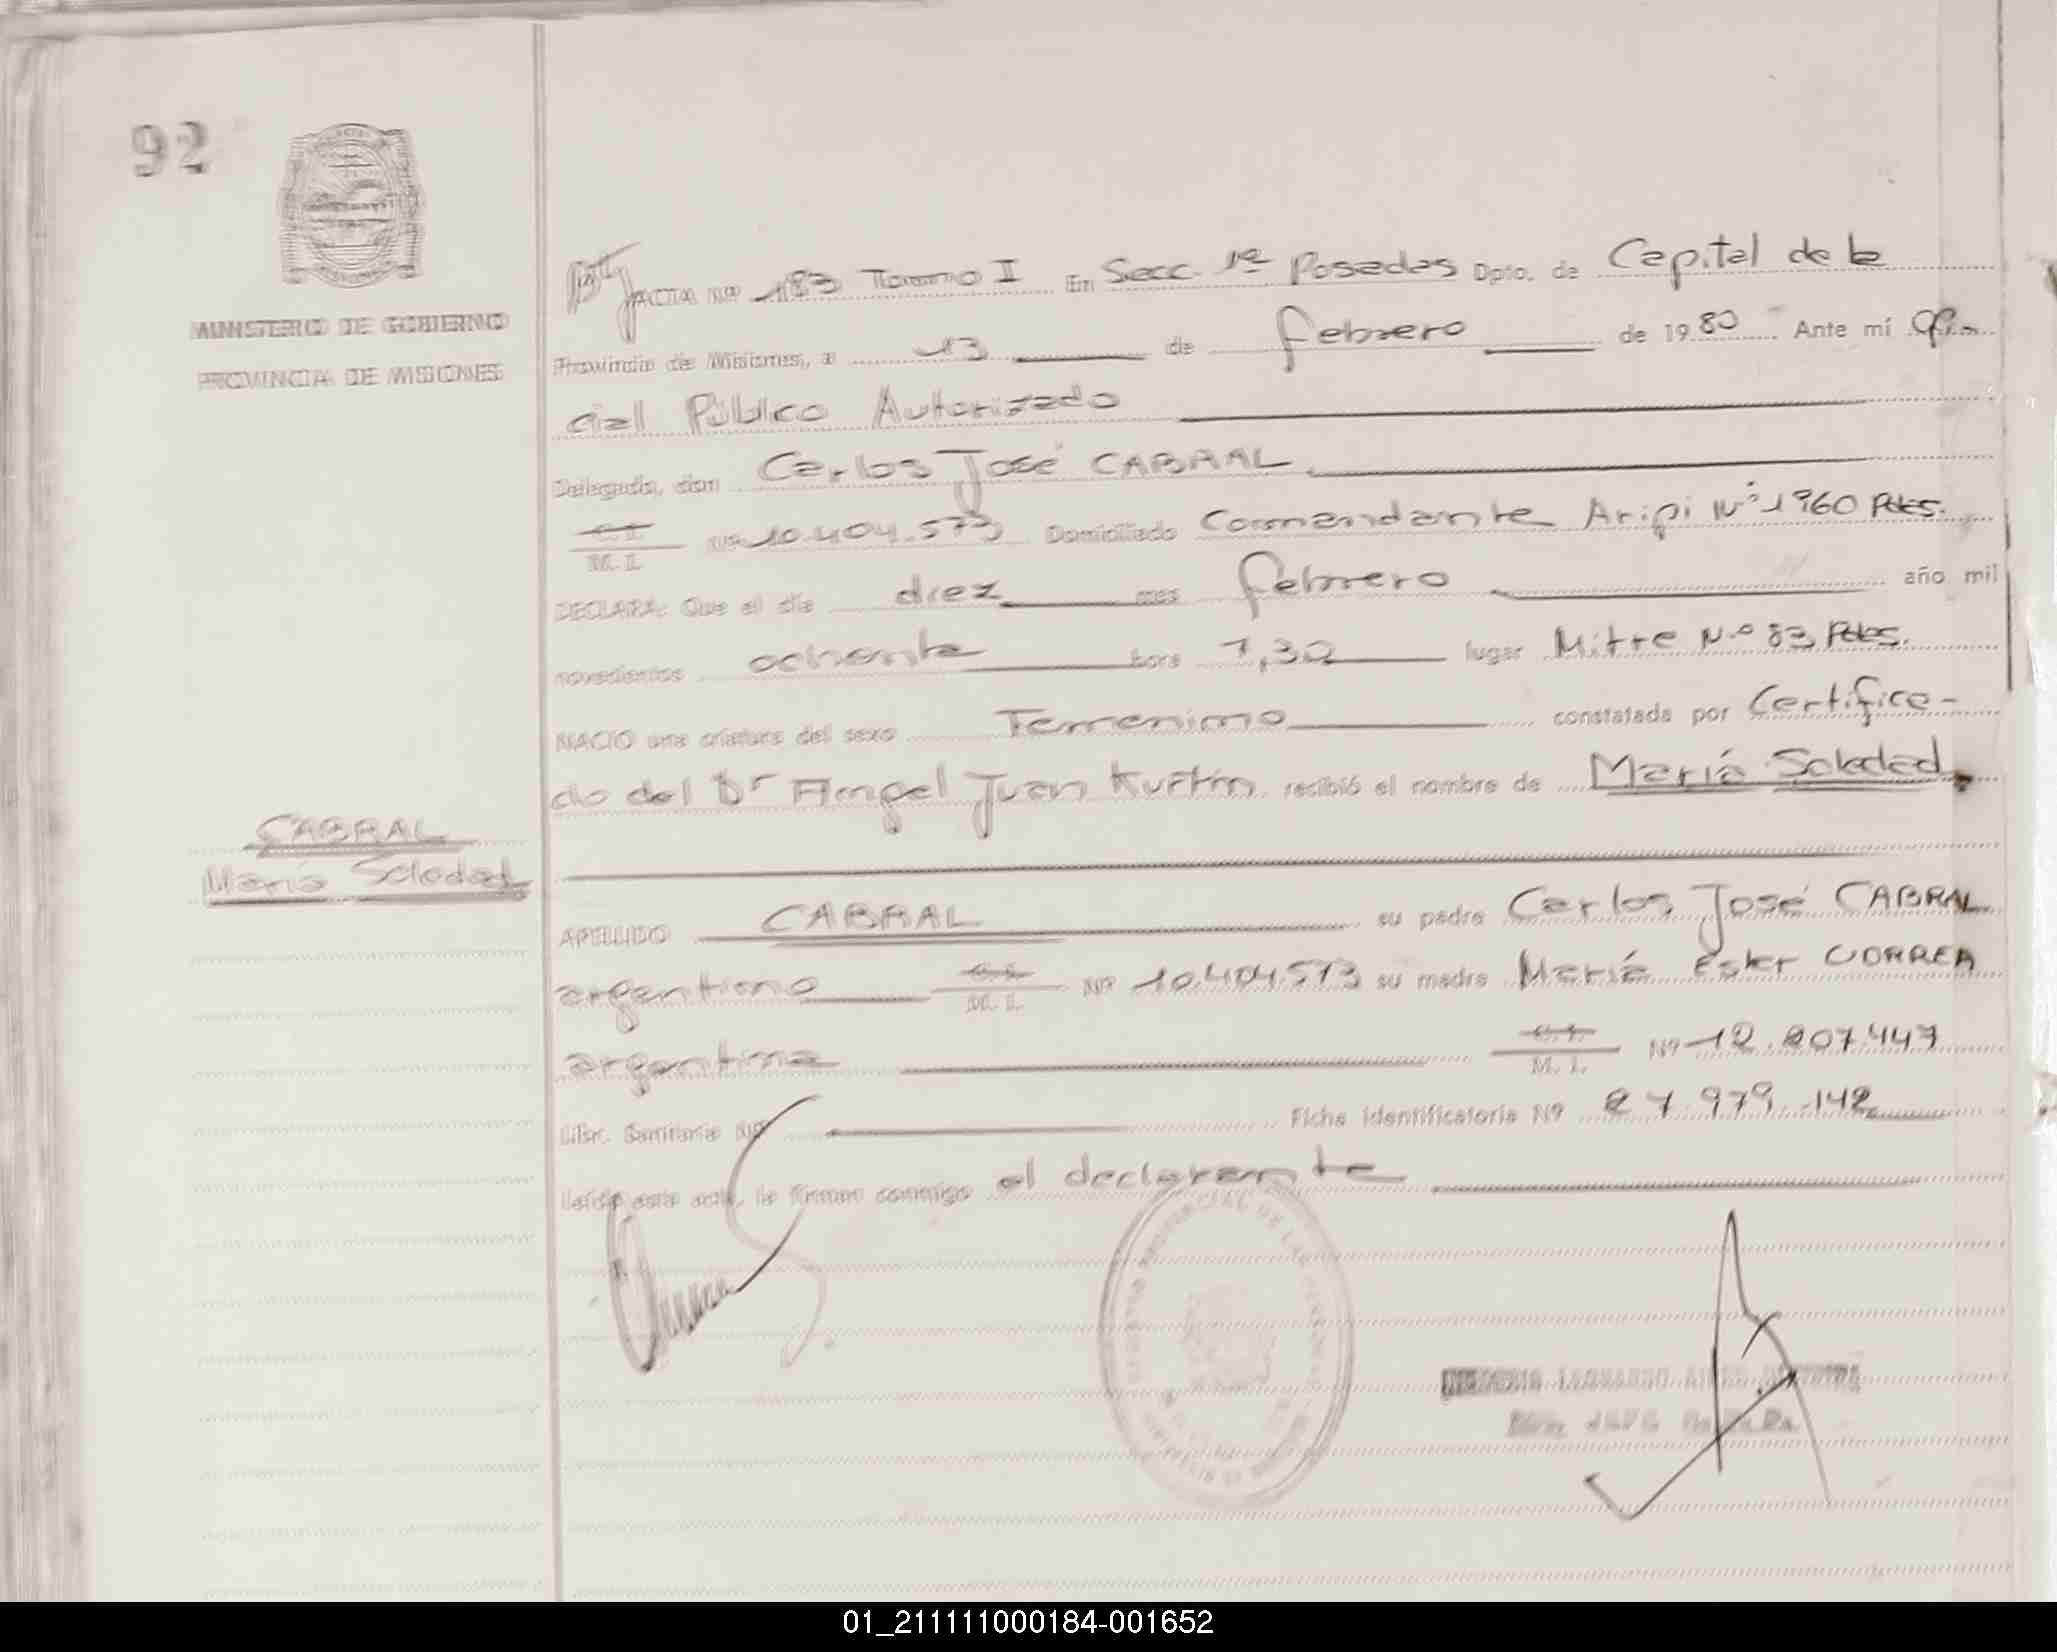 92
MINISTERIO DE GOBIERNO
PROVINCIA DE MISIONES
ACTA Nº 183 Tomo I En Secc. 1ª Posadas Dpto. de Capital de la
Provincia de Misiones, a 13 de febrero de 1980 Ante mí Ofi-
cial Público Autorizado
Delegado, don Carlos José CABRAL
C.I.
M. I. Nº 10.404.573 Domiciliado Comandante Aripi Nº 1960 Pdas.
DECLARA: Que el día diez mes febrero año mil
novecientos ochenta hora 7,30 lugar Mitre Nº 83 Pdas.
NACIO una criatura del sexo Femenino constatada por Certifica-
do del Dr Angel Juan Kurtin recibió el nombre de María Soledad
CABRAL
María Soledad
APELLIDO CABRAL su padre Carlos José CABRAL
argentino C.I.
M. I. Nº 10.404.573 su madre María Ester CORREA
argentina C.I.
M. I. Nº 12.207.447
Libr. Sanitaria Nº Ficha identificatoria Nº 27.979.142
Leída esta acta, la firman conmigo el declarante
01_211111000184-001652